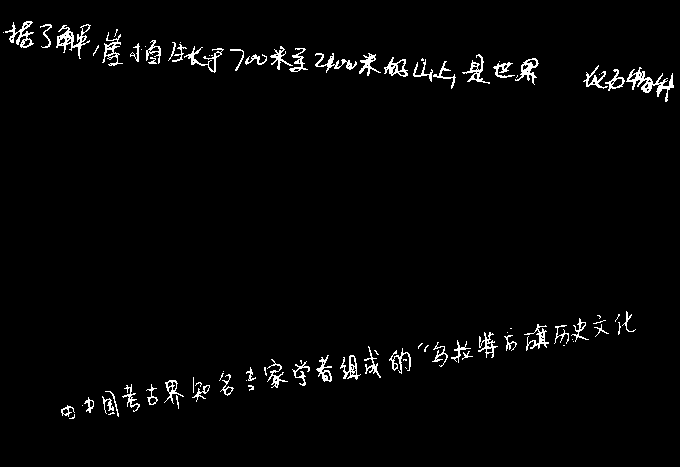 据了解,崖柏生长于700米至2100米的山上,是世界 化石物种
由中国考古界知名专家学者组成的“乌拉特后旗历史文化